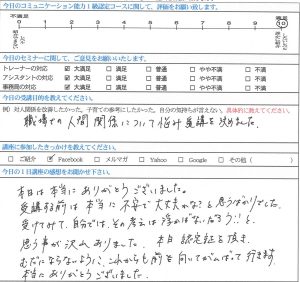 今日のコミュニケーション能力1級認定コースに関して、評価をお願い致します。
0 1 2 3 4 5 6 7 8 9 10
今日のセミナーに関して、ご意見をお願いいたします。
トレーナーの対応 ☑ 大満足 □ 満足 □ 普通 □ やや不満 □ 不満
アシスタントの対応 ☑ 大満足 □ 満足 □ 普通 □ やや不満 □ 不満
事務局の対応 ☑ 大満足 □ 満足 □ 普通 □ やや不満 □ 不満
今日の受講目的を教えてください。
例）対人関係を改善したかった。子育ての参考にしたかった。自分の気持ちが言えない。具体的に教えてください。
職場での人間関係について悩み受講を決めました。
講座に参加したきっかけを教えてください。
□ ご紹介 ☑ Facebook □ メルマガ □ Yahoo □ Google □ その他（ ）
今日の1日講座の感想をお聞かせ下さい。
本日は本当にありがとうございました。
受講する前は本当に不安で大丈夫かなと思うばかりでした。
受けてみて、自分では、その考えは浮かばないだろうと
思う事が沢山ありました。本日認定証を頂き、
むだにならないように、これからも前を向いてがんばって行きます。
本当にありがとうございました。